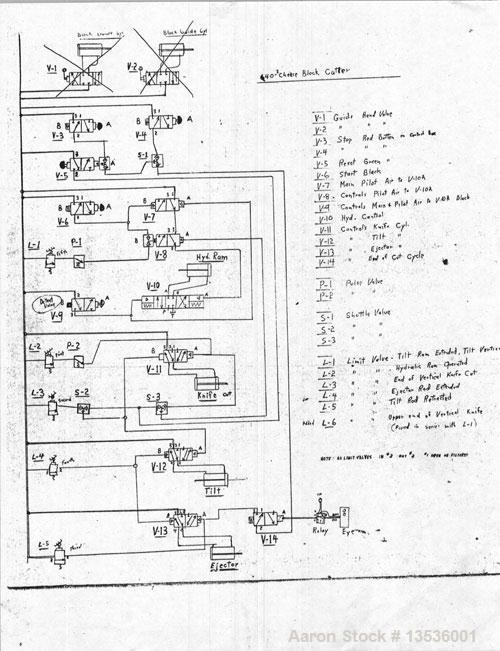 Block Guide Cyl
V-1
V-2
640# Cheese Block Cutter
V-1 Guide Head Valve
V-2 " " "
V-3 Stop Red Button on Control Box
V-4 " " "
V-5 Reset Green "
V-6 Start Black "
V-7 Main Pilot Air to V-10A
V-8 - Controls Pilot Air to V-10A
V-9 Controls Main & Pilot Air to V-10A Block
V-10 Hyd. Control
V-11 Controls Knife Cyl.
V-12 " Tilt "
V-13 " Ejector "
V-14 End of Cut Cycle
P-1 Pulse Valve
P-2 " "
S-1 Shuttle Valve
S-2 " "
S-3 " "
L-1 Limit Valve - Tilt Ram Extended, Tilt Vertical
L-2 " " Hydraulic Ram Operated
L-3 " " End of Vertical Knife Cut
L-4 " " Ejector Rod Extended
L-5 " " Tilt Rod Retracted
L-6 " " Upper end of Vertical Knife
(Piped in series with L-1)
NOTE: ALL LIMIT VALVES IN #2 OUT #3
B V-3 A
B V-4 A
V-5
S-1
B V-6
B V-7 A
L-1
P-1
B V-8 A
Hyd. Ram
V-10
V-9
L-2
P-2
B V-11 A
Knife Cut
L-3 second
S-2
S-3
L-4 fourth
V-12
Tilt
V-13
V-14
Relay
Eye
L-5 third
Ejector
Aaron Stock # 13536001